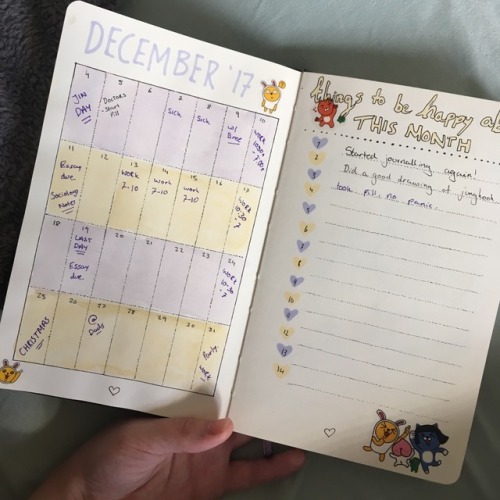 DECEMBER '17
4
5
6
7
8
9
10
JIN
DAY
Doctors
- Start
Pill
Sick
Sick
w/
Bree
WORK
10:30
- 7:30
11
12
13
14
15
16
17
Essay
due.
Sociology
Notes
work
7-10
work
7-10
work
7-10
WORK
10:30
- ?
18
19
20
21
22
23
24
LAST
DAY
Essay
due.
WORK
10-30
- ?
25
26
27
28
29
30
31
CHRISTMAS
@
Dads
Party
work
things to be happy ab
THIS MONTH
1
2 Started journalling again!
3 Did a good drawing of jungkook
4 took pill, no panic.
5
6
7
8
9
10
11
12
13
14